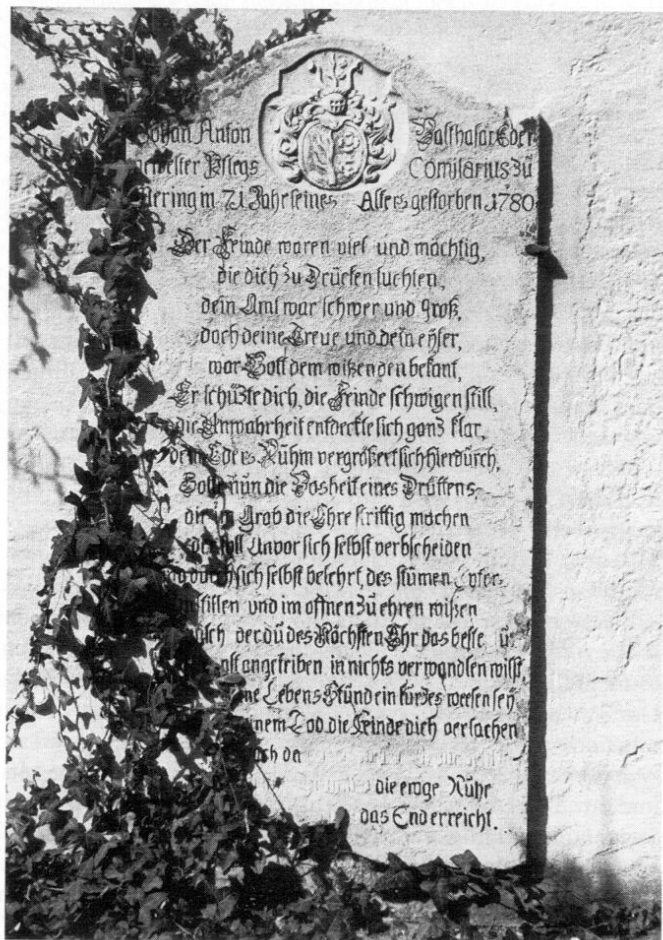 Johan Anton Balthasar Eder
gewester Pflegs Comisarius zu
Mering im 71 Jahr seines Alters gestorben 1780
Der Feinde waren viel und mächtig,
die dich zu Drücken suchten,
dein Amt war schwer und groß,
doch deine Treue und dein eyfer,
war Gott dem wißenden bekant,
Er schüzte dich, die Feinde schwigen still,
die Unwahrheit entdeckte sich ganz klar,
dein Eders Ruhm vergrößert sich hierdurch,
Solte nun die Bosheit eines Dritten
dir im Grab die Ehre krittig machen
soll Unvor sich selbst verbscheiden
durch sich selbst belehrt, des stümen
stillen und im offnen zu ehren wißen
der du des Nächsten Ehr das beste u:
angetriben in nichts verwandlen wilst,
Lebens Stund ein kurzes weesen sey
Tod die Feinde dich verlachen
da
die ewge Ruhe
das End erreicht.